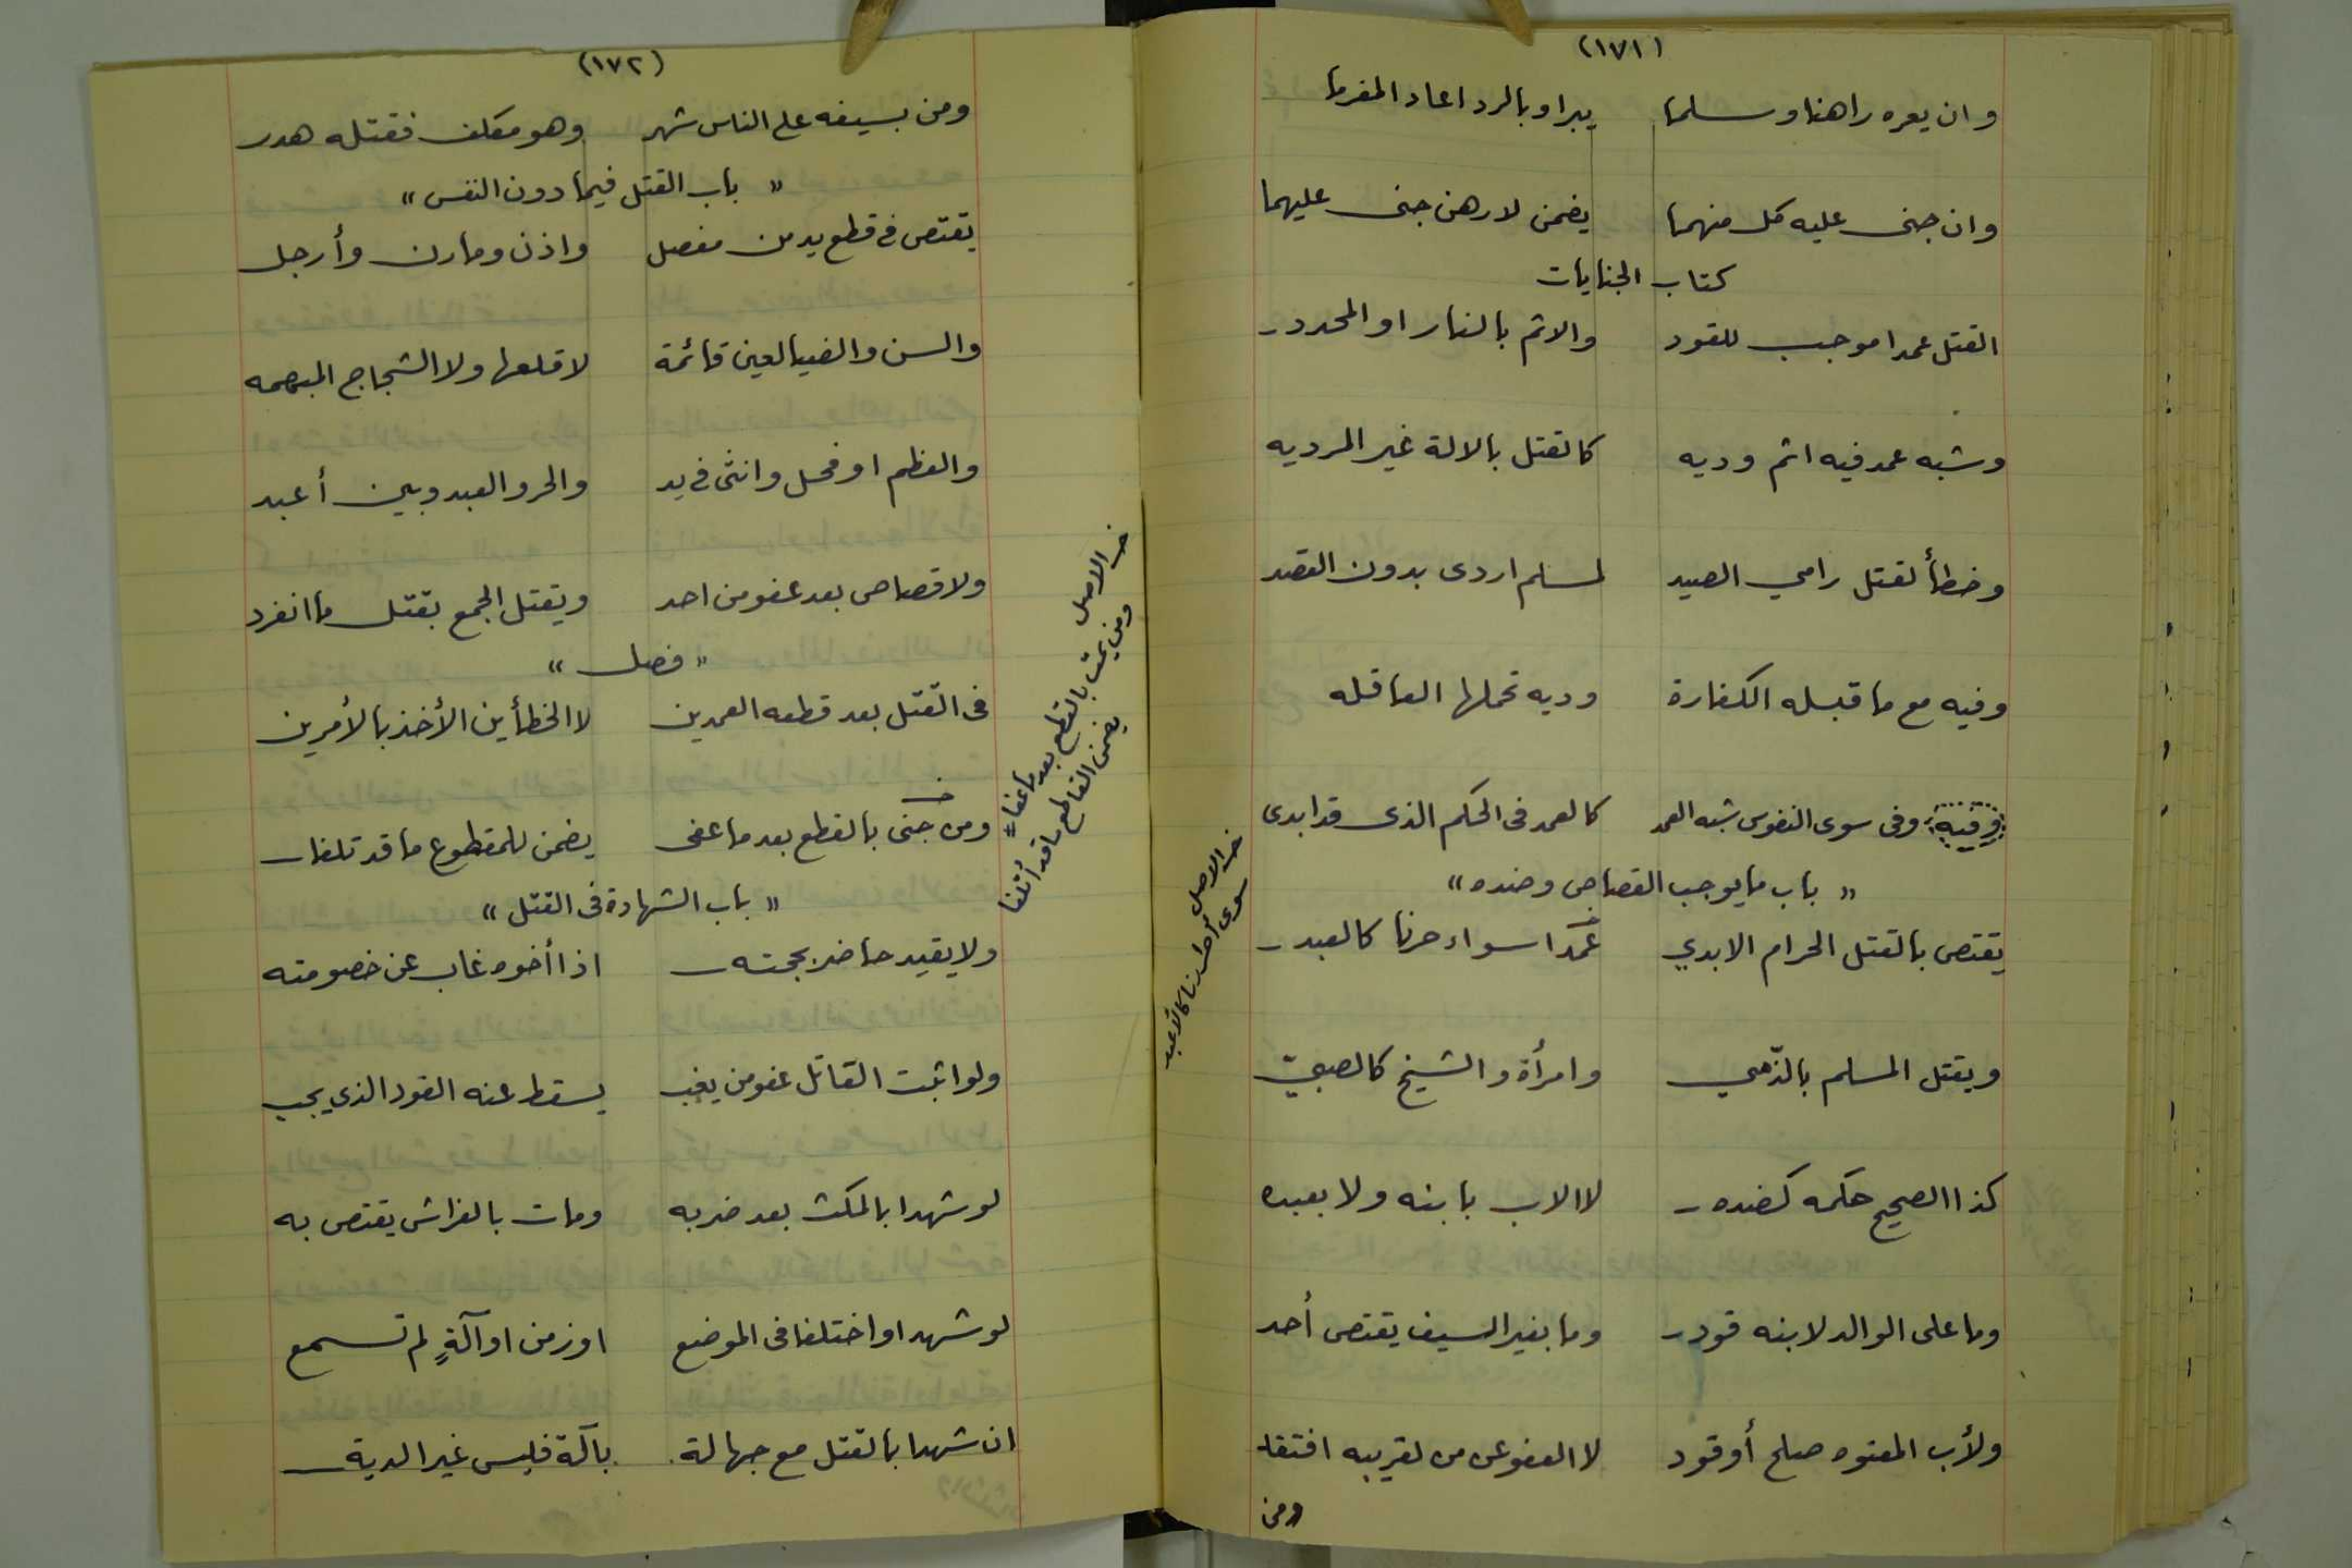 (١٧١)
وان يعره راهنا وسلما يبرا وبالرد اعاد المغرما
وان جنى عليه كل منهما يضمن لا رهن جنى عليهما
كتاب الجنايات
القتل عمدا موجب للقود والاثم بالنار او المحدد
وشبه عمد فيه اثم وديه كالقتل بالالة غير المرديه
وخطأ لقتل رامي الصيد لمسلم اردى بدون القصد
وفيه مع ما قبله الكفارة وديه تحملها العاقله
وفى سوى النفوس شبه العمد كالعمد فى الحكم الذى قد ابدى
« باب ما يوجب القصاص وضده »
يقتص بالقتل الحرام الابدي عمدا سواء حرنا كالعبد
ويقتل المسلم بالذّمي وامرأة والشيخ كالصبيّ
كذا الصحيح حكمه كضده لا الاب بابنه ولا بعبده
وما على الوالد لابنه قود وما بغير السيف يقتص أحد
ولأب المعتوه صلح أو قود لا العفو عن من لقريبه افتقد
ومن
(١٧٢)
ومن بسيفه على الناس شهر وهو مكلف فقتله هدر
« باب القتل فيما دون النفس »
يقتص فى قطع يد من مفصل واذن ومارن وأرجل
والسن والضيا لعين قائمة لا قلعها ولا الشجاج المبهمه
والعظم او فحل وانثى في يد والحر والعبد وبين أعبد
ولا قصاص بعد عفو من احد ويقتل الجمع بقتل ما انفرد
« فصل »
فى القتل بعد قطعه العمدين لا الخطأين الأخذ بالأمرين
ومن جنى بالقطع بعد ما عفى يضمن للمقطوع ما قد تلفا
« باب الشهادة فى القتل »
ولا يقيد حاضر بحجته اذا أخوه غاب عن خصومته
ولو اثبت القاتل عفو من يغب يسقط عنه القود الذي يجب
لو شهدا بالمكث بعد ضربه ومات بالفراش يقتص به
لو شهدا واختلفا فى الموضع او زمن او آلةٍ لم تسمع
ان شهدا بالقتل مع جهالة بآلة فليس غير الدية
خـ الاصل
ومن يمت بالقطع بعد ما عفا
يضمن القاطع ما قد أتلفا
خـ الاصل